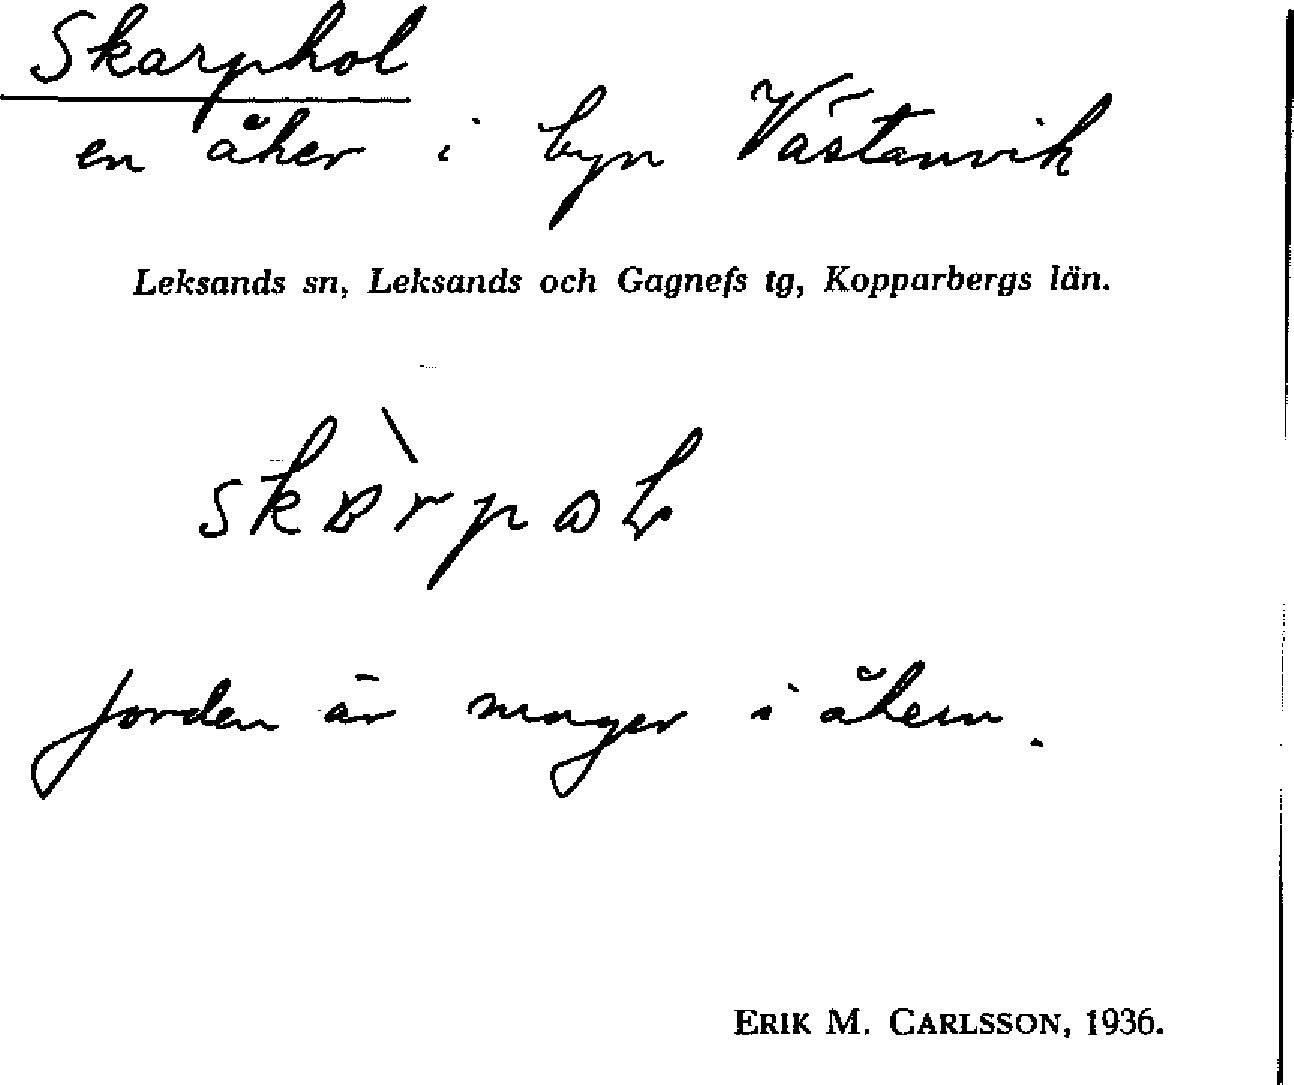 Skarphol
en åker i byn Västanvik
Leksands sn, Leksands och Gagnefs tg, Kopparbergs län.
Jorden är mager i åkern.
ERIK M. CARLSSON, 1936.